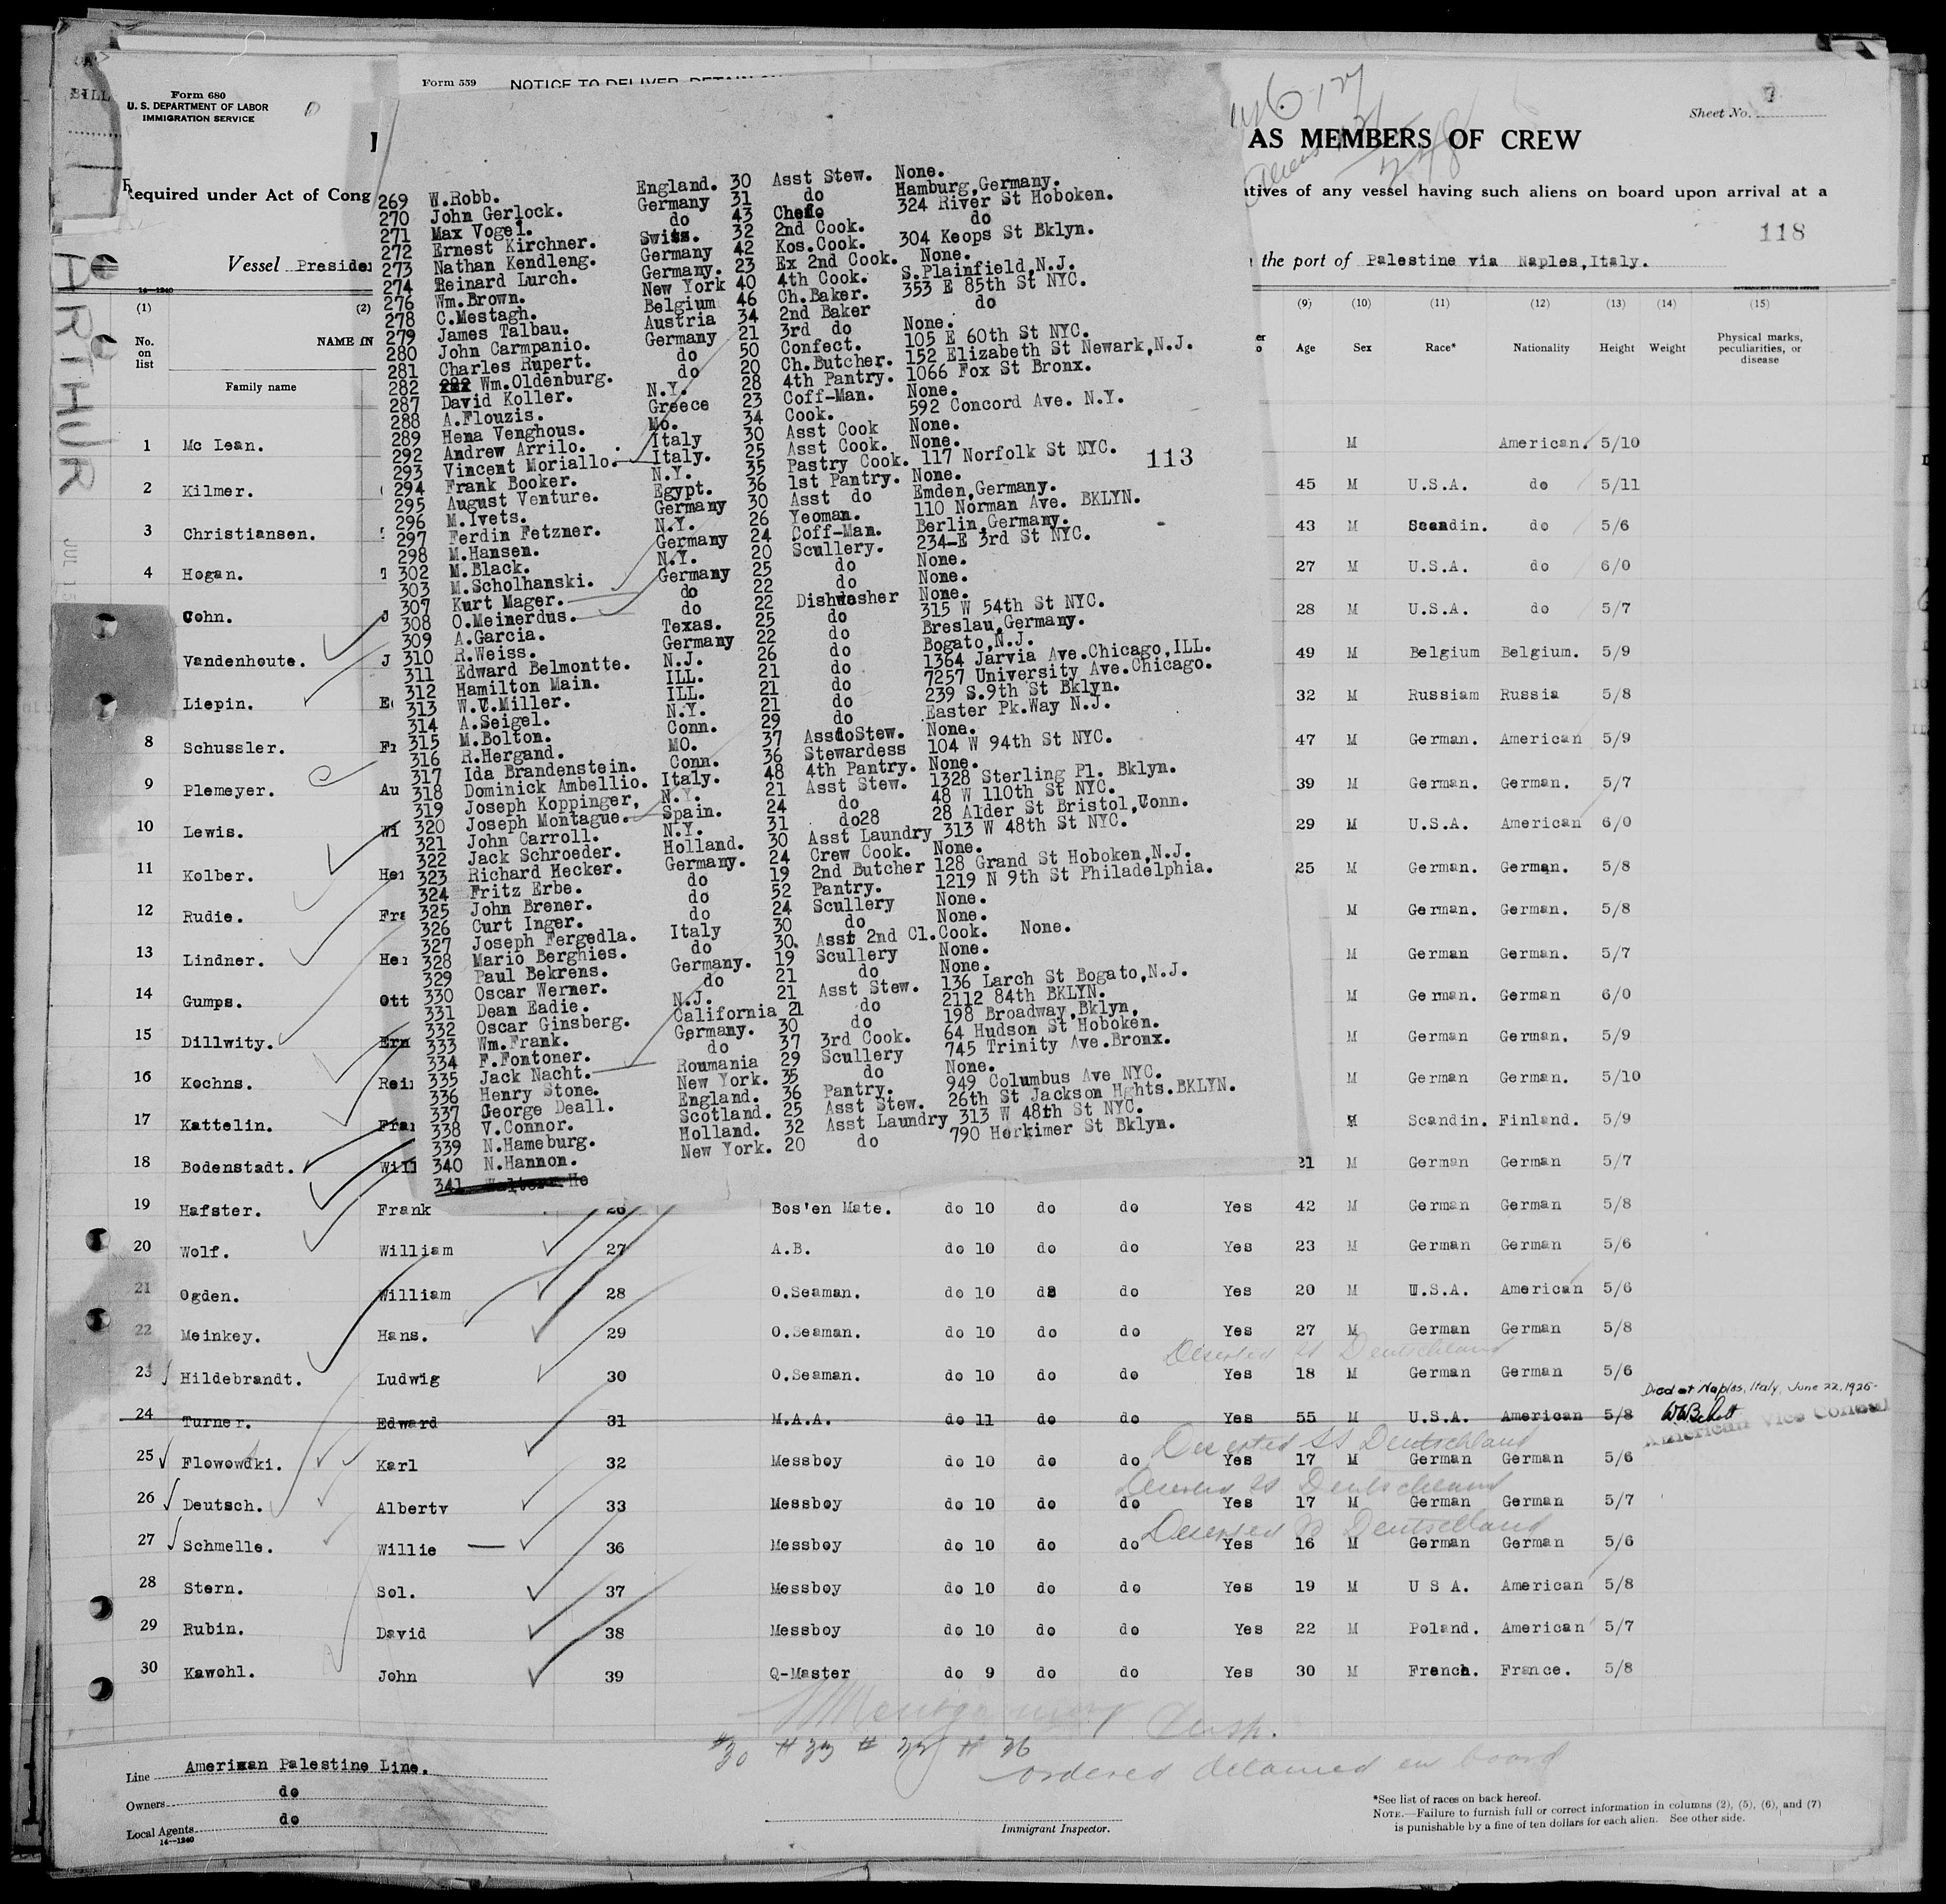 Form 680
U. S. DEPARTMENT OF LABOR
IMMIGRATION SERVICE
Form 559 NOTICE TO DELIVER, DETAIN
Sheet No.
AS MEMBERS OF CREW
Required under Act of Cong
atives of any vessel having such aliens on board upon arrival at a
118
Vessel Preside
the port of Palestine via Naples,Italy.
ARTHUR
269 W.Robb. England. 30 Asst Stew. None.
270 John Gerlock. Germany 31 do Hamburg,Germany.
271 Max Vogel. do 43 Chef 324 River St Hoboken.
272 Ernest Kirchner. Swits. 32 2nd Cook. do
273 Nathan Kendleng. Germany 42 Kos.Cook. 304 Keops St Bklyn.
274 Reinard Lurch. Germany. 23 Ex 2nd Cook. None.
276 Wm.Brown. New York 40 4th Cook. S.Plainfield,N.J.
278 C.Mestagh. Belgium 46 Ch.Baker. 353 E 85th St NYC.
279 James Talbau. Austria 34 2nd Baker do
280 John Carmpanio. Germany 21 3rd do None.
281 Charles Rupert. do 50 Confect. 105 E 60th St NYC.
282 Wm.Oldenburg. do 20 Ch.Butcher. 152 Elizabeth St Newark,N.J.
287 David Koller. N.Y. 28 4th Pantry. 1066 Fox St Bronx.
288 A.Flouzis. Greece 23 Coff-Man. None.
289 Hena Venghous. Mo. 34 Cook. 592 Concord Ave. N.Y.
292 Andrew Arrilo. Italy 30 Asst Cook None.
293 Vincent Moriallo. Italy. 25 Asst Cook. None.
294 Frank Booker. N.Y. 35 Pastry Cook. 117 Norfolk St NYC. 113
295 August Venture. Egypt. 36 1st Pantry. None.
296 M.Ivets. Germany 30 Asst do Emden,Germany.
297 Ferdin Fetzner. N.Y. 26 Yeoman. 110 Norman Ave. BKLYN.
298 M.Hansen. Germany 24 Coff-Man. Berlin,Germany.
302 M.Black. N.Y. 20 Scullery. 234-E 3rd St NYC.
303 M.Scholhanski. Germany 25 do None.
307 Kurt Mager. do 22 do None.
308 O.Meinerdus. do 22 Dishwasher None.
309 A.Garcia. Texas. 25 do 315 W 54th St NYC.
310 R.Weiss. Germany 22 do Breslau,Germany.
311 Edward Belmontte. N.J. 26 do Bogato,N.J.
312 Hamilton Main. ILL. 21 do 1364 Jarvia Ave.Chicago,ILL.
313 W.C.Miller. ILL. 21 do 7257 University Ave.Chicago.
314 A.Seigel. N.Y. 21 do 239 S.9th St Bklyn.
315 M.Bolton. Conn. 29 do Easter Pk.Way N.J.
316 R.Hergand. MO. 37 AssdoStew. None.
317 Ida Brandenstein. Conn. 36 Stewardess 104 W 94th St NYC.
318 Dominick Ambellio. Italy. 48 4th Pantry. None.
319 Joseph Koppinger, N.Y. 21 Asst Stew. 1328 Sterling Pl. Bklyn.
320 Joseph Montague. Spain. 24 do 48 W 110th St NYC.
321 John Carroll. N.Y. 31 do28 28 Alder St Bristol,Conn.
322 Jack Schroeder. Holland. 30 Asst Laundry 313 W 48th St NYC.
323 Richard Hecker. Germany. 24 Crew Cook. None.
324 Fritz Erbe. do 19 2nd Butcher 128 Grand St Hoboken,N.J.
325 John Brener. do 52 Pantry. 1219 N 9th St Philadelphia.
326 Curt Inger. do 24 Scullery None.
327 Joseph Fergedla. Italy 30 do None.
328 Mario Berghies. do 30. Asst 2nd Cl.Cook. None.
329 Paul Bekrens. Germany. 19 Scullery None.
330 Oscar Werner. do 21 do None.
331 Dean Eadie. N.J. 21 Asst Stew. 136 Larch St Bogato,N.J.
332 Oscar Ginsberg. California 21 do 2112 84th BKLYN.
333 Wm.Frank. Germany. 30 do 198 Broadway,Bklyn,
334 F.Fontoner. do 37 3rd Cook. 64 Hudson St Hoboken.
335 Jack Nacht. Roumania 29 Scullery 745 Trinity Ave.Bronx.
336 Henry Stone. New York. 35 do None.
337 George Deall. England. 36 Pantry. 949 Columbus Ave NYC.
338 V.Connor. Scotland. 25 Asst Stew. 26th St Jackson Hghts.BKLYN.
339 N.Hameburg. Holland. 32 Asst Laundry 313 W 48th St NYC.
340 N.Hannon. New York. 20 do 790 Herkimer St Bklyn.
341 Walter He
(1) (2) (9) (10) (11) (12) (13) (14) (15)
No. on list NAME IN Age Sex Race* Nationality Height Weight Physical marks, peculiarities, or disease
Family name
1 Mc Lean. M American. 5/10
2 Kilmer. 45 M U.S.A. do 5/11
3 Christiansen. 43 M Scandin. do 5/6
4 Hogan. 27 M U.S.A. do 6/0
Cohn. J 28 M U.S.A. do 5/7
Vandenhoute. J 49 M Belgium Belgium. 5/9
Liepin. E 32 M Russiam Russia 5/8
8 Schussler. Fr 47 M German. American 5/9
9 Plemeyer. Au 39 M German. German. 5/7
10 Lewis. Wi 29 M U.S.A. American 6/0
11 Kolber. Her 25 M German. German. 5/8
12 Rudie. Fra M German. German. 5/8
13 Lindner. He M German German. 5/7
14 Gumps. Ott M German. German 6/0
15 Dillwity. Ern M German German. 5/9
16 Kochns. Rei M German German. 5/10
17 Kattelin. Fra M Scandin. Finland. 5/9
18 Bodenstadt. Will 21 M German German 5/7
19 Hafster. Frank 26 Bos'en Mate. do 10 do do Yes 42 M German German 5/8
20 Wolf. William 27 A.B. do 10 do do Yes 23 M German German 5/6
21 Ogden. William 28 O.Seaman. do 10 do do Yes 20 M U.S.A. American 5/6
22 Meinkey. Hans. 29 O.Seaman. do 10 do do Yes 27 M German German 5/8
Deserted SS Deutschland
23 Hildebrandt. Ludwig 30 O.Seaman. do 10 do do Yes 18 M German German 5/6
Died at Naples, Italy, June 22, 1925-
24 Turner. Edward 31 M.A.A. do 11 do do Yes 55 M U.S.A. American 5/8
American Vice Consul
Deserted SS Deutschland
25 Flowowdki. Karl 32 Messboy do 10 do do Yes 17 M German German 5/6
Deserted SS Deutschland
26 Deutsch. Albertv 33 Messboy do 10 do do Yes 17 M German German 5/7
Deserted SS Deutschland
27 Schmelle. Willie 36 Messboy do 10 do do Yes 16 M German German 5/6
28 Stern. Sol. 37 Messboy do 10 do do Yes 19 M U S A. American 5/8
29 Rubin. David 38 Messboy do 10 do do Yes 22 M Poland. American 5/7
30 Kawohl. John 39 Q-Master do 9 do do Yes 30 M French. France. 5/8
Montgomery Insp.
ordered detained on board
Line American Palestine Line.
Owners do
Local Agents do
14-1240
Immigrant Inspector.
*See list of races on back hereof.
NOTE.—Failure to furnish full or correct information in columns (2), (5), (6), and (7)
is punishable by a fine of ten dollars for each alien. See other side.